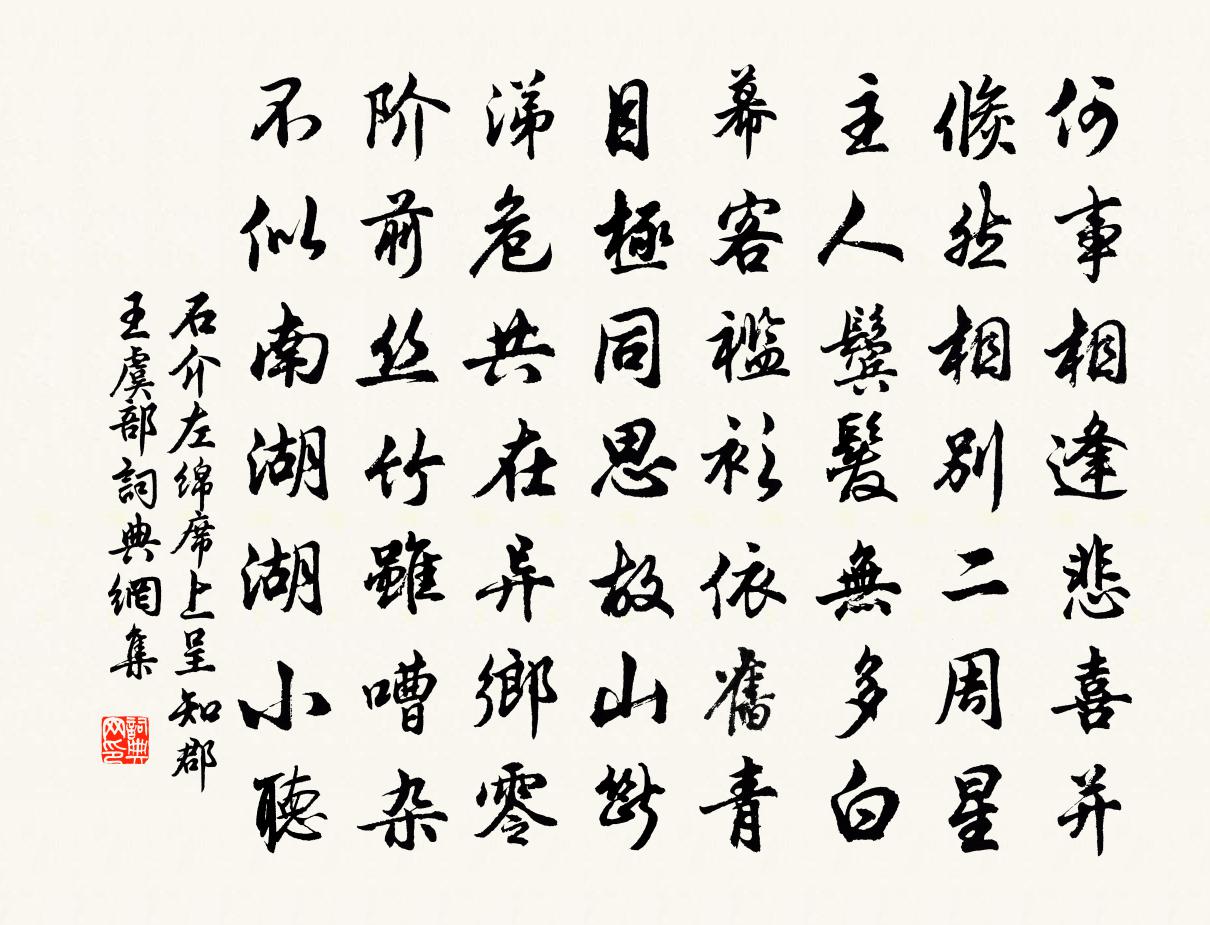 何事相逢悲喜并
倏然相别二周星
主人鬢髮無多白
幕客襤衫依舊青
目極同思故山斷
涕危共在异鄉零
阶前丝竹雖嘈杂
不似南湖湖小聽
石介左绵席上呈知郡
王虞部詞典網集
詞典网印